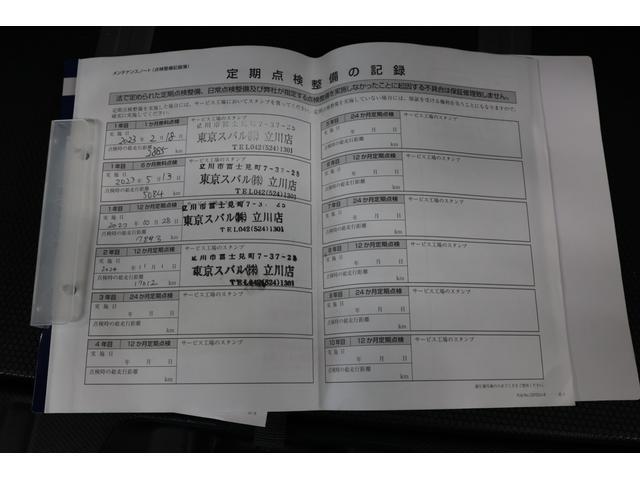 メンテナンスノート(点検整備記録簿)
定期点検整備の記録
法で定められた定期点検整備、日常点検整備及び弊社が指定する点検整備を実施しなかったことに起因する不具合は保証修理致しません。
1年目 1か月無料点検
サービス工場のスタンプ
実施日
2023年2月18日
点検時の総走行距離
km
立川市富士見町7-37-25
東京スバル㈱ 立川店
TEL042(524)1301
1年目 6か月無料点検
サービス工場のスタンプ
実施日
2023年5月13日
点検時の総走行距離
5084 km
立川市富士見町7-37-25
東京スバル㈱ 立川店
TEL042(524)1301
1年目 12か月定期点検
実施日
2023年10月28日
点検時の総走行距離
7843 km
立川市富士見町7-3
東京スバル㈱ 立川店
TEL042(524)1301
2年目 12か月定期点検
サービス工場のスタンプ
実施日
2024年11月1日
点検時の総走行距離
17012 km
立川市富士見町7-37-25
東京スバル㈱ 立川店
TEL042(524)1301
3年目 24か月定期点検
サービス工場のスタンプ
実施日
年 月 日
点検時の総走行距離
km
4年目 12か月定期点検
サービス工場のスタンプ
実施日
年 月 日
点検時の総走行距離
km
5年目 24か月定期点検
サービス工場のスタンプ
実施日
年 月 日
点検時の総走行距離
km
6年目 12か月定期点検
サービス工場のスタンプ
実施日
年 月 日
点検時の総走行距離
km
7年目 24か月定期点検
サービス工場のスタンプ
実施日
年 月 日
点検時の総走行距離
km
8年目 12か月定期点検
サービス工場のスタンプ
実施日
年 月 日
点検時の総走行距離
km
9年目 24か月定期点検
サービス工場のスタンプ
実施日
年 月 日
点検時の総走行距離
km
10年目 12か月定期点検
サービス工場のスタンプ
実施日
年 月 日
点検時の総走行距離
km